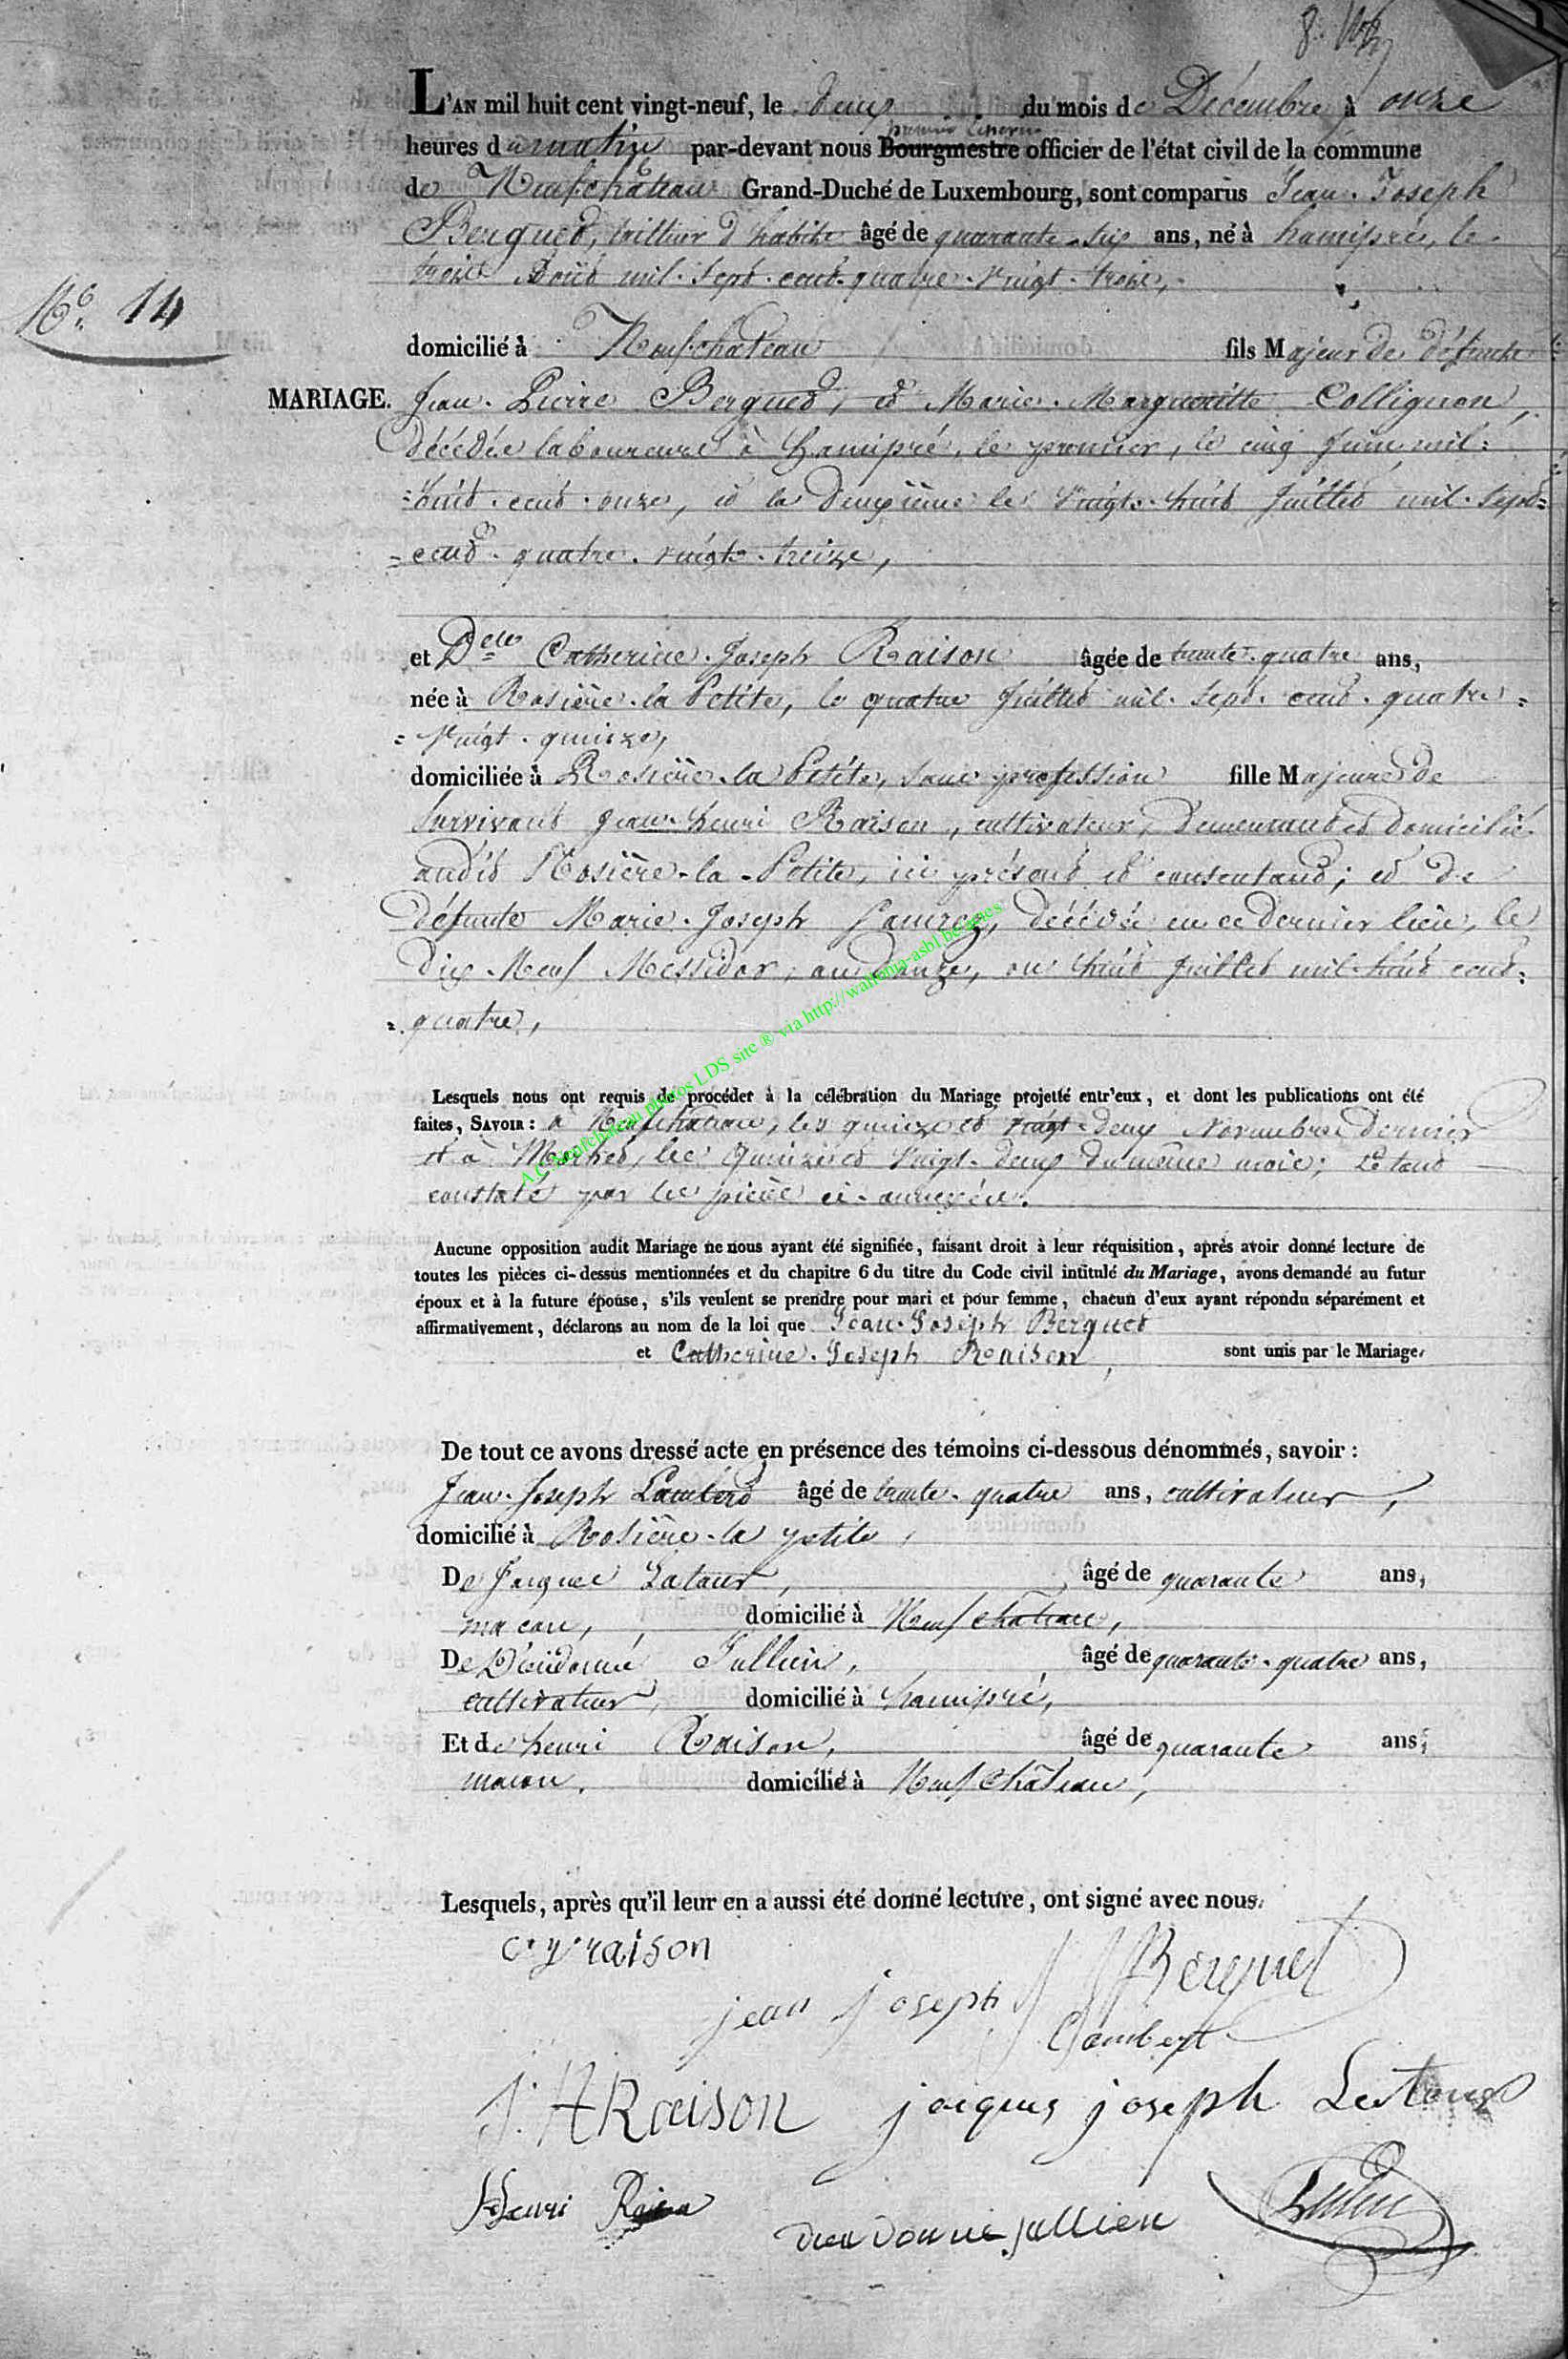 L'AN mil huit cent vingt-neuf, le deux du mois de Décembre, à onze
heures du matin par-devant nous Bourgmestre officier de l'état civil de la commune
de Neufchâteau Grand-Duché de Luxembourg, sont comparus Jean-Joseph
Berguet, tailleur d'habits âgé de quarante-six ans, né à hamipré, le
treize Août mil-sept-cent-quatre-vingt-trois,
No. 14
domicilié à Neufchâteau fils Majeur de défunts
MARIAGE. Jean-Pierre Berguet, et Marie-Margueritte Collignon,
décédés laboureurs à hamipré, le premier, le cinq Juin mil=
=huit-cent-onze, et la deuxième le vingt-huit Juillet mil-sept=
=cent-quatre-vingt-treize,
et Delle Catherine-Joseph Raison âgée de trente-quatre ans,
née à Rosière-la-Petite, le quatre Juillet mil-sept-cent-quatre=
=vingt-quinze,
domiciliée à Rosière-la-Petite, sans profession fille Majeure de
survivant Jean-henri Raison, cultivateur, demeurant et domicilié
audit Rosière-la-Petite, ici présent et consentant; et de
défunte Marie-Joseph décédée en ce dernier lieu, le
dix-Neuf Messidor, an douze, ou huit Juillet mil-huit cent=
=quatre,
Lesquels nous ont requis de procéder à la célébration du Mariage projetté entr'eux, et dont les publications ont été
faites, SAVOIR : à Neufchâteau, les quinze et vingt-deux Novembre dernier
et à les quinze et vingt-deux du même mois; le tout
constaté par les pièces ci-annexées.
Aucune opposition audit Mariage ne nous ayant été signifiée, faisant droit à leur réquisition, après avoir donné lecture de
toutes les pièces ci-dessus mentionnées et du chapitre 6 du titre du Code civil intitulé du Mariage, avons demandé au futur
époux et à la future épouse, s'ils veulent se prendre pour mari et pour femme, chacun d'eux ayant répondu séparément et
affirmativement, déclarons au nom de la loi que Jean-Joseph Berguet
et Catherine-Joseph Raison, sont unis par le Mariage.
De tout ce avons dressé acte en présence des témoins ci-dessous dénommés, savoir :
Jean-Joseph Lambert âgé de trente-quatre ans, cultivateur,
domicilié à Rosière-la petite,
De Jacques Latour, âgé de quarante ans,
macon, domicilié à Neufchateau,
De Dieudonné Jullien, âgé de quarante-quatre ans,
cultivateur, domicilié à hamipré,
Et de henri Raison, âgé de quarante ans,
macon, domicilié à Neufchâteau,
Lesquels, après qu'il leur en a aussi été donné lecture, ont signé avec nous.
c j raison
J J Berguet
jean joseph Lambert
J. H Raison jacques joseph Lestour
Henri Raison
dieudonné jullien
A.C. Neufchâteau photos LDS site ® via http://wallonia-asbl.be/actes